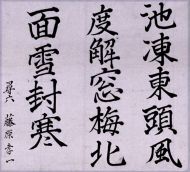 池凍東頭風
度解窓梅北
面雪封寒
尋六 藤原李一